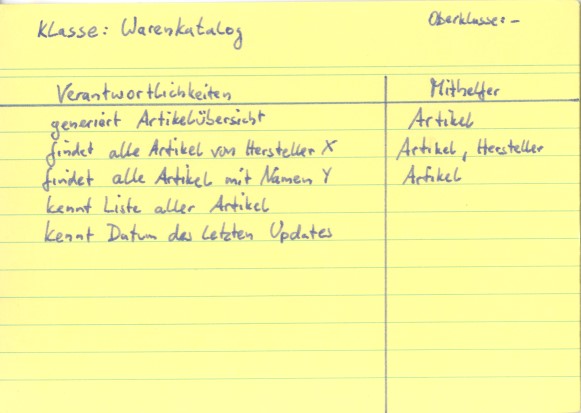 Klasse: Warenkatalog
Oberklasse: -
Verantwortlichkeiten Mithelfer
generiert Artikelübersicht Artikel
findet alle Artikel von Hersteller X Artikel, Hersteller
findet alle Artikel mit Namen Y Artikel
kennt Liste aller Artikel
kennt Datum des letzten Updates